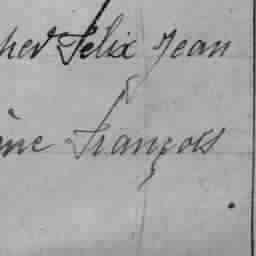 her Felix Jean
ine François